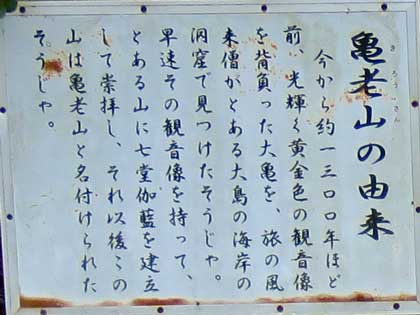 亀老山の由来
き ろう さん
今から約一三〇〇年ほど
前、光輝く黄金色の観音像
を背負った大亀を、旅の風
来僧がとある大島の海岸の
洞窟で見つけたそうじゃ。
早速その観音像を持って、
とある山に七堂伽藍を建立
して崇拝し、それ以後この
山は亀老山と名付けられた
そうじゃ。